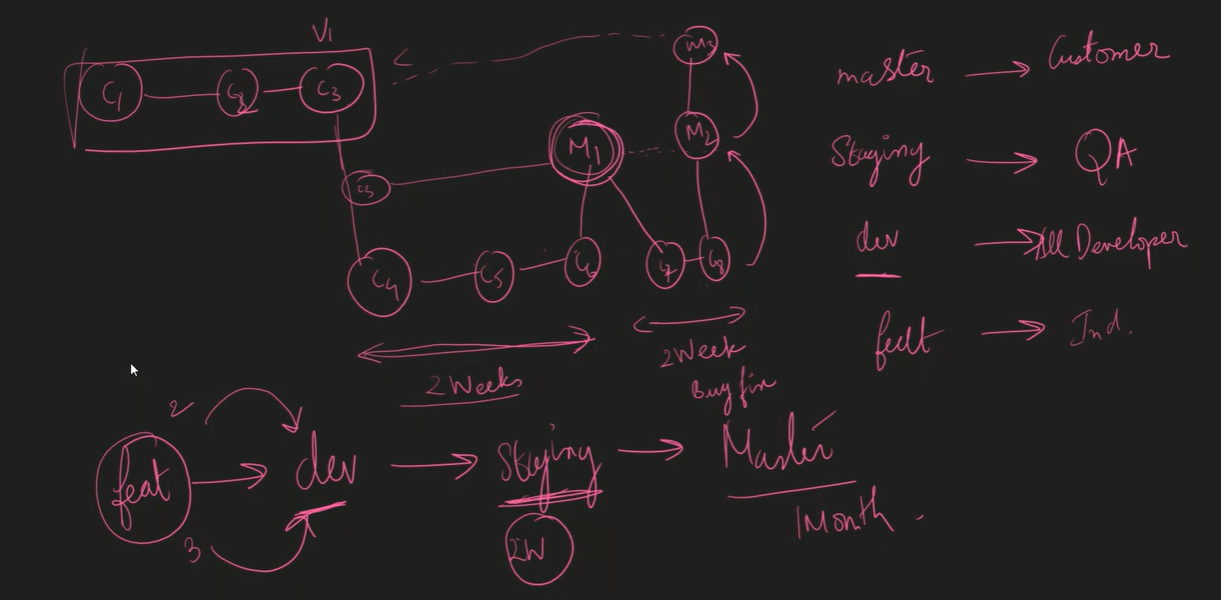 V1
C1 C2 C3
M3
M1 M2
C3
C4 C5 C6 C7 C8
2 Weeks
2 Week
Bug fix
master → Customer
Staging → QA
dev → All Developer
feat → Ind.
2
feat → dev → Staging → Master
3
2W
1 Month.